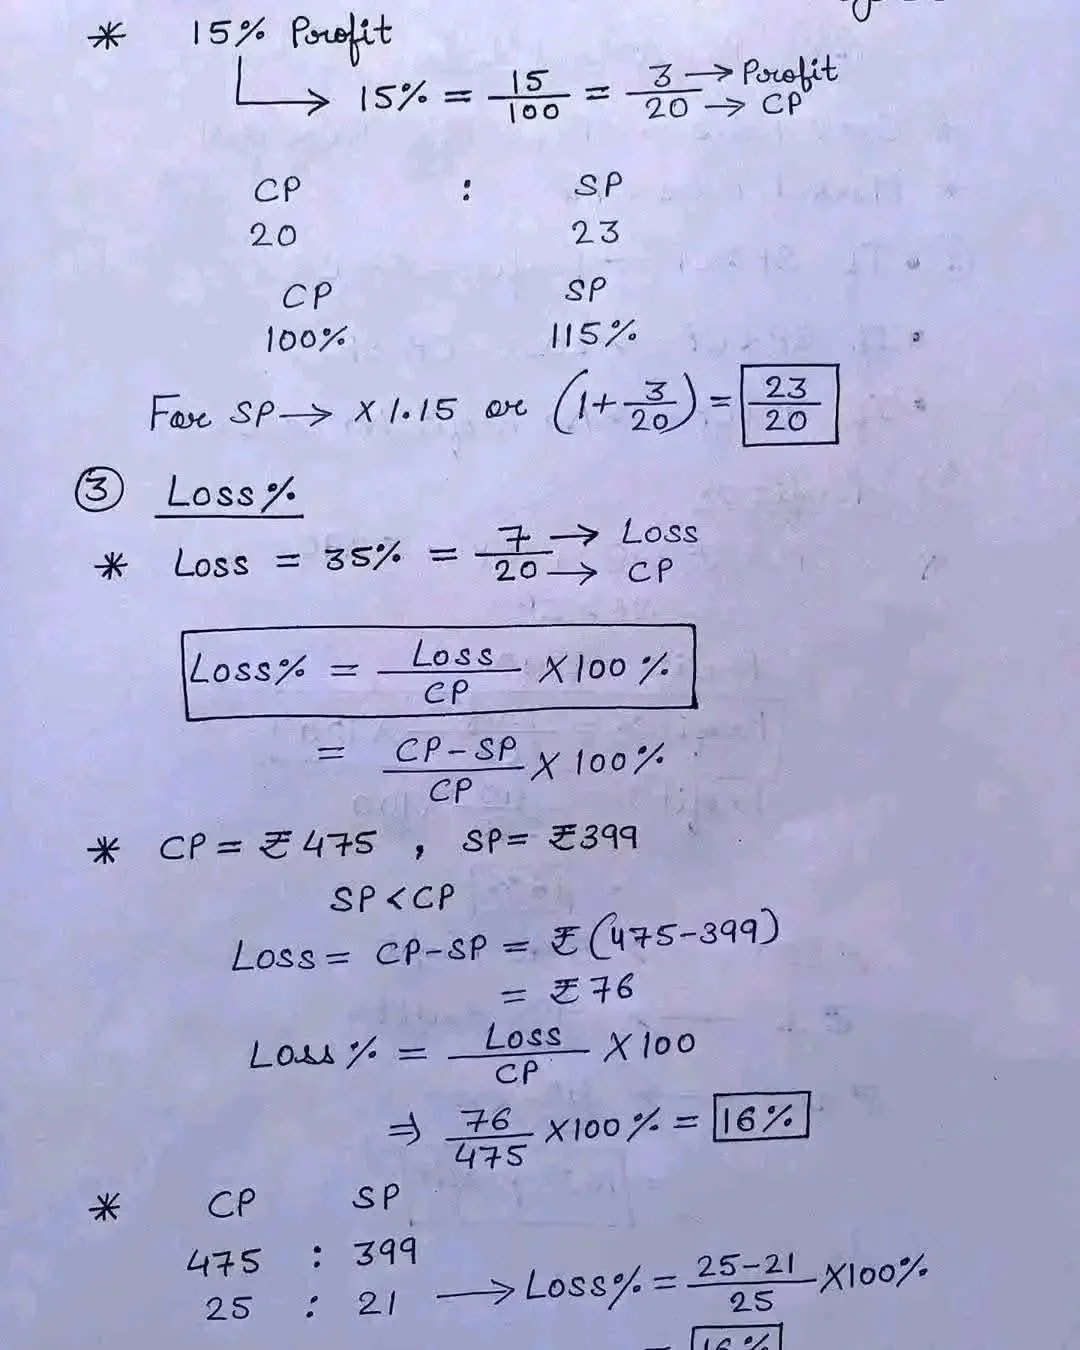 * 15% Profit
↳ 15% = 15/100 = 3/20 → Profit → CP
CP : SP
20 23
CP SP
100% 115%
For SP → × 1.15 or (1 + 3/20) = 23/20
③ Loss %
* Loss = 35% = 7/20 → Loss → CP
Loss% = Loss/CP × 100 %
= CP - SP/CP × 100 %
* CP = ₹ 475 , SP = ₹ 399
SP < CP
Loss = CP - SP = ₹ (475 - 399)
= ₹ 76
Loss % = Loss/CP × 100
⇒ 76/475 × 100 % = 16 %
* CP SP
475 : 399
25 : 21 → Loss% = 25 - 21/25 × 100%
= 16 %